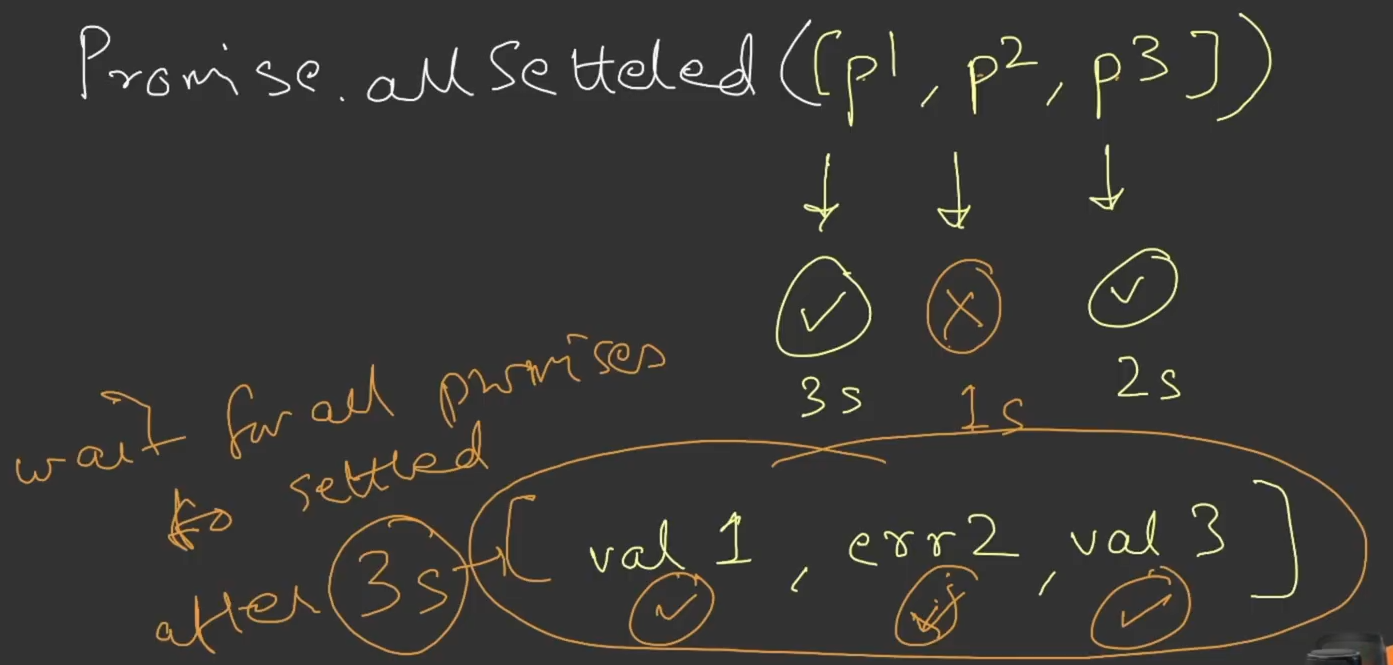 Promise.allSetteled([p1, p2, p3])
3s 1s 2s
wait for all promises
to settled
after 3s → [val 1, err2, val 3]